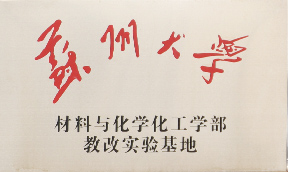 蘇州大学
材料与化学化工学部
教改实验基地